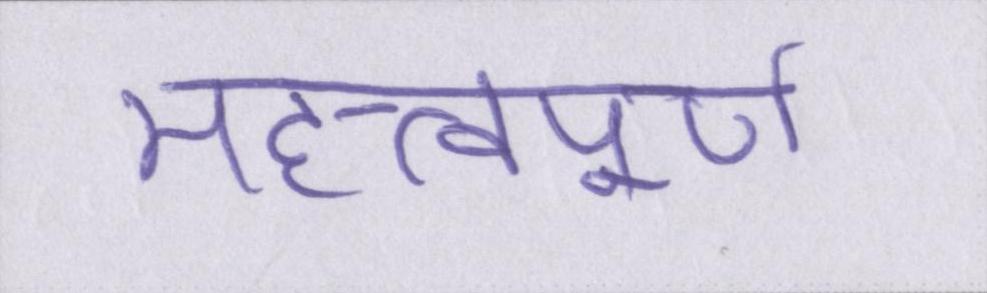 महत्त्वपूर्ण